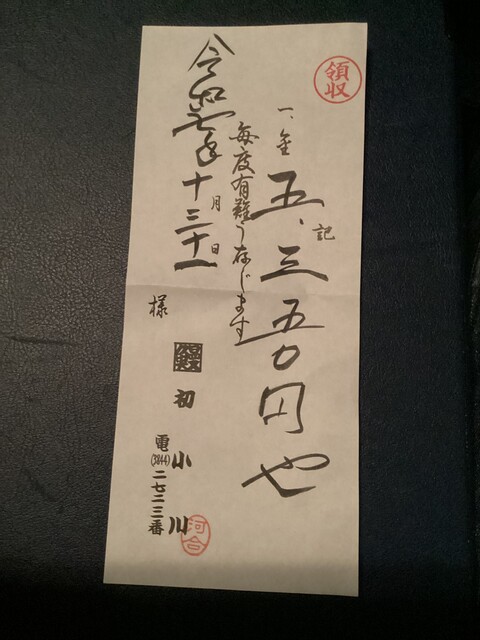 領収
記
一、金五、三五〇円也
毎度有難う存じます
令和年十月三十一日
様
初小川
電(3844)二七二三番
河合